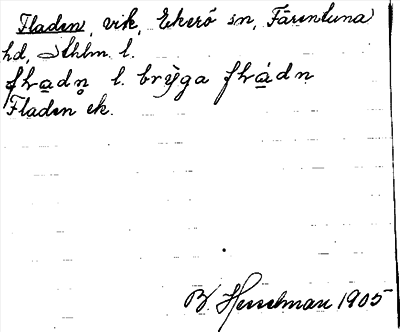 Fladen, vik, Ekerö sn, Färentuna
hd, Sthlm. l.
l. bryga
Fladen ek.
B. Hesselman 1905